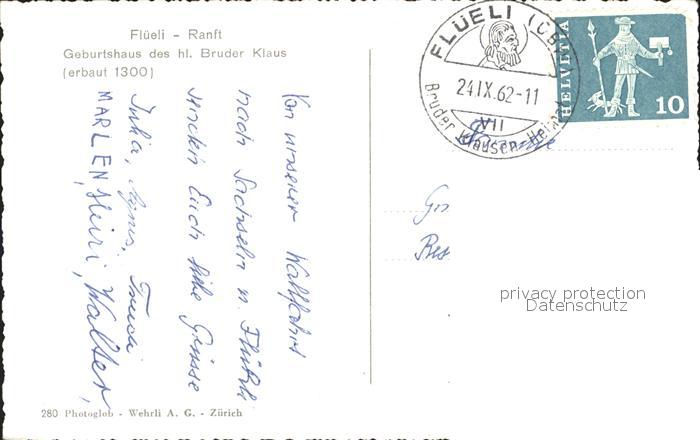 Flüeli - Ranft
Geburtshaus des hl. Bruder Klaus
(erbaut 1300)
Von unserer Wallfahrt
nach Sachseln u. Flühli
senden Euch liebe Grüsse
Julia, Agnes, Trudi
MARLEN, Heiri, Walter,
280 Photoglob - Wehrli A. G. - Zürich
FLÜELI (OBW)
24.IX.62-11
VII
Bruder Klausen-Heimat
HELVETIA
10
privacy protection
Datenschutz